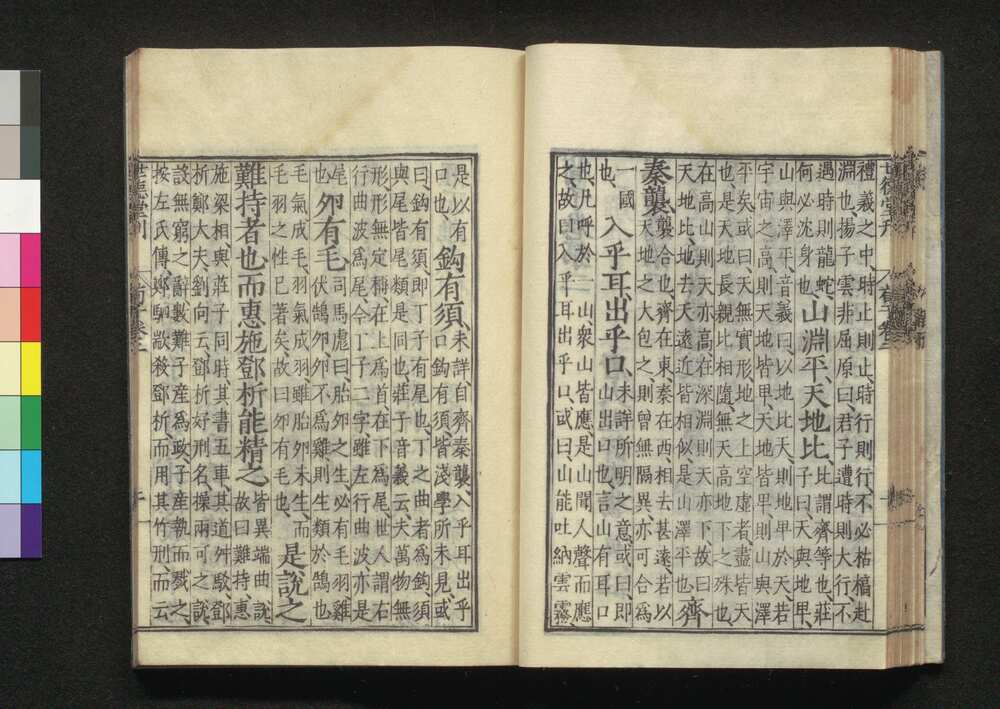 禮義之中、時止則止、時行則行、不必枯槁赴
淵也、揚子雲非屈原曰、君子遭時則大行、不
遇時則龍蛇、
何必沈身也、
山淵平、天地比、
比謂齊等也、莊
子曰、天與地卑、
山與澤平、音義曰、以地比天、則地卑於天、若
宇宙之高、則天地皆卑、天地皆卑、則山與澤
平矣、或曰、天無實形、地之上空虛者、盡皆天
也、是天地長親比相隨、無天高地下之殊也、
在高山則天亦高、在深淵則天亦下、故曰、
天地比、地去天遠近皆相似、是山澤平也、
齊
秦襲、
襲合也、齊在東、秦在西、相去甚遠、若以
天地之大包之、則曾無隔異、亦可合爲
一國
也、
入乎耳、出乎口、
未詳所明之意、或曰、即
山出口也、言山有耳口
也、凡呼於一山、衆山皆應、是山聞人聲而應
之、故曰入乎耳出乎口、或曰、山能吐納雲霧、
是以有
口也、
鉤有須、
未詳、自齊秦襲、入乎耳出乎
口、鉤有須、皆淺學所未見、或
曰、鉤有須、即丁子有尾也、丁之曲者爲鉤、須
與尾皆毛類、是同也、莊子音義云、夫萬物無
形、形無定稱、在上爲首、在下爲尾、世人謂右
行曲波爲尾、今丁子二字、雖左行曲波、亦是
尾
也、
卵有毛、
司馬彪曰、胎卵之生、必有毛羽、雞
伏鵠卵、卵不爲雞、則生類於鵠也、
毛氣成毛、羽氣成羽、雖胎卵未生、而
毛羽之性已著矣、故曰卵有毛也、
是說之
難持者也、而惠施鄧析能精之、
皆異端曲說、
故曰難持、惠
施梁相、與莊子同時、其書五車、其道舛駁、鄧
析鄭大夫、劉向云、鄧析好刑名、操兩可之說、
設無窮之辭、數難子產爲政、子產執而戮之、
按左氏傳、鄭駟歂殺鄧析、而用其竹刑、而云
世德堂刊
荀子卷二